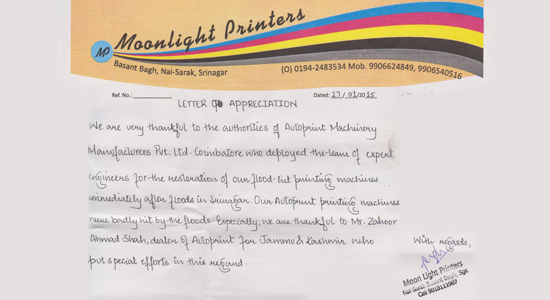 MP
Moonlight Printers
Basant Bagh, Nai-Sarak, Srinagar
(O) 0194-2483534 Mob. 9906624849, 9906540516
Ref. No.:
Dated: 27/01/2015
LETTER OF APPRECIATION
We are very thankful to the authorities of Autoprint Machinery
Manufacturers Pvt. Ltd. Coimbatore who deployed the team of expert
engineers for the restoration of our flood-hit printing machines
immediately after floods in Srinagar. Our Autoprint printing machines
were badly hit by the floods. Especially, we are thankful to Mr. Zahoor
Ahmad Shah, dealer of Autoprint for Jammu & Kashmir who
put special efforts in this regard.
With regards,
Moon Light Printers
Nai Sarak, Basant Bagh, Sgr
Cell 9018111907